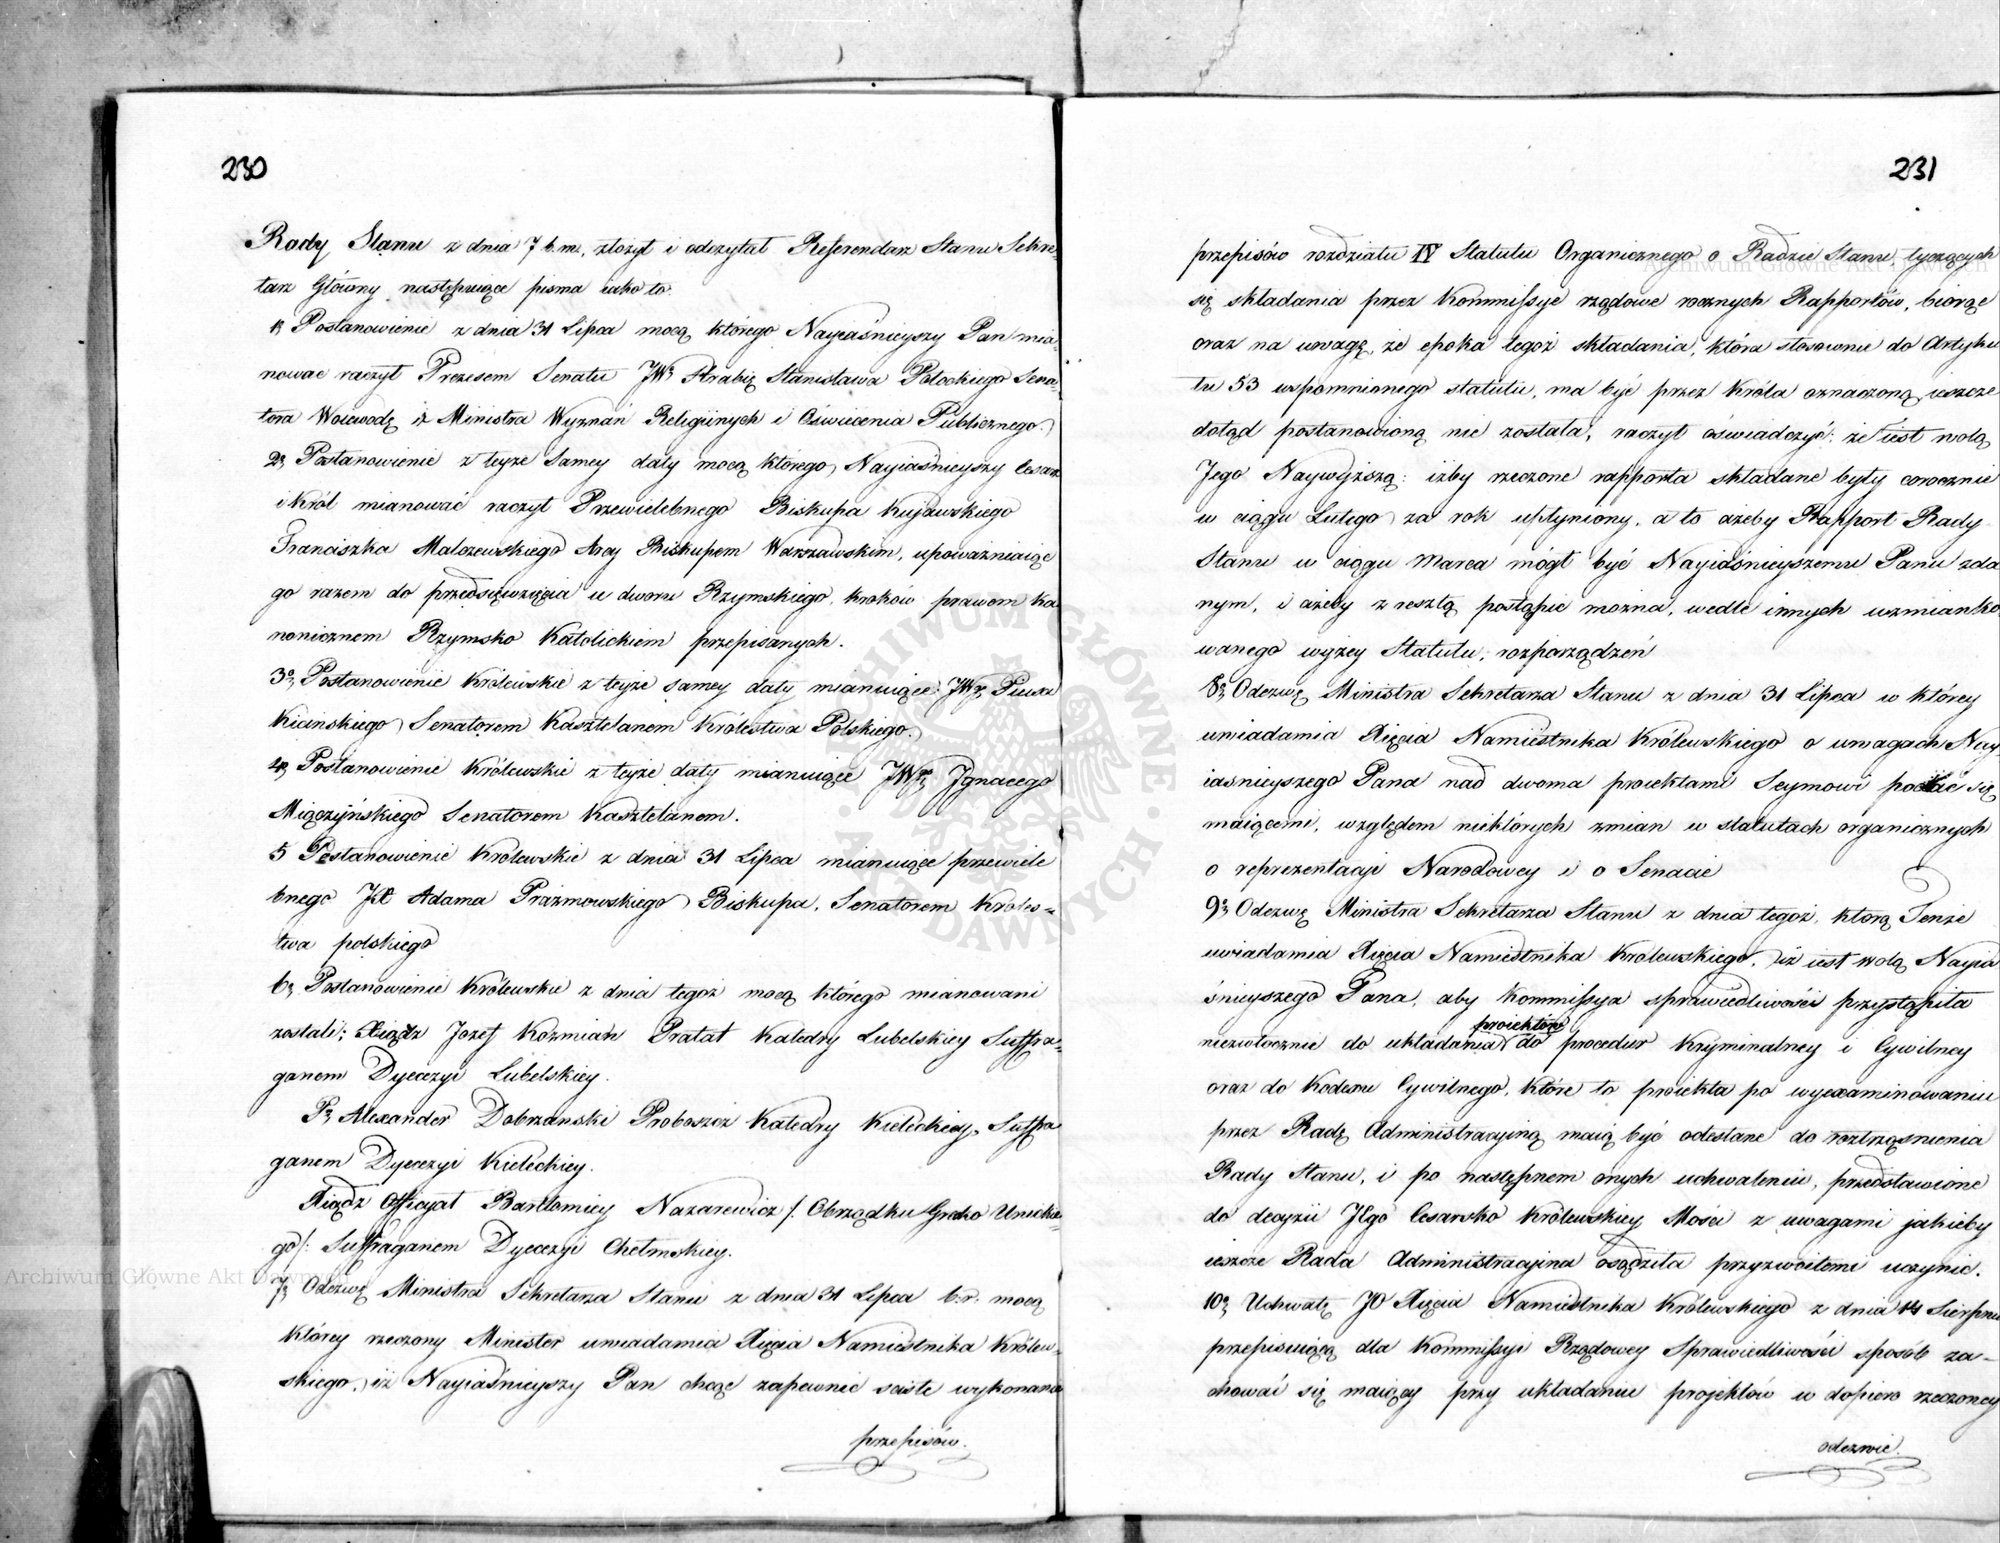 230
Rady Stanu z dnia 7 b.m. złożył i odczytał Referendarz Stanu Sekre-
tarz Główny następuiące pisma iako to:
1º Postanowienie z dnia 31 Lipca mocą którego Nayiaśnieyszy Pan mia-
nować raczył Prezesem Senatu JWº Hrabię Stanisława Potockiego Sena-
tora Woiewodę i Ministra Wyznań Religiinych i Oświecenia Publicznego.
2º Postanowienie z teyże samey daty mocą którego Nayiaśnieyszy Cesarz
i Król mianować raczył Przewielebnego Biskupa Kujawskiego
Franciszka Malczewskiego Arcy Biskupem Warszawskim, upoważniaiąc
go razem do przedsięwzięcia u dworu Rzymskiego kroków prawem Ka-
nonicznem Rzymsko Katolickiem przepisanych.
3º Postanowienie Królewskie z teyże samey daty mianuiące JWº Piusa
Kicińskiego Senatorem Kasztelanem Królestwa Polskiego.
4º Postanowienie Królewskie z teyże daty mianuiące JWº Ignacego
Miączyńskiego Senatorem Kasztelanem.
5 Postanowienie Królewskie z dnia 31 Lipca mianuiące przewiele
bnego JX Adama Prażmowskiego Biskupa, Senatorem Króles-
twa polskiego
6º Postanowienie Królewskie z dnia tegoż mocą którego mianowani
zostali; Xiądz Jozef Kozmian Prałat Katedry Lubelskiey Suffra-
ganem Dyecezyi Lubelskiey.
Alexander Dobrzanski Proboszcz Katedry Kieleckiey, Suffra
ganem Dyecezyi Kieleckiey.
Xiądz Officyał Bartłomiey Nazarewicz /: Obrządku Greko Unickie-
go :/ Suffraganem Dyecezyi Chełmskiey.
7º Odezwę Ministra Sekretarza Stanu z dnia 31 Lipca b.r. mocą
którey rzeczony Minister uwiadamia Xięcia Namiestnika Królew-
skiego, iż Nayiaśnieyszy Pan chcąc zapewnić ścisłe wykonanie
przepisów.
231
przepisów rozdziału IV Statutu Organicznego o Radzie Stanu tyczących
się składania przez Kommissye rządowe rocznych Rapportów, biorąc
oraz na uwagę, że epoka tegoż składania, która stosownie do Artyku
łu 53 wspomnionego statutu, ma być przez Króla oznaczoną ieszcze
dotąd postanowioną nie została, raczył oświadczyć; że iest wolą
Jego Naywyższą: iżby rzeczone rapporta składane były corocznie
w ciągu Lutego za rok upłyniony, a to ażeby Rapport Rady
Stanu w ciągu Marca mógł być Nayiaśnieyszemu Panu zda
nym, i ażeby z resztą postąpić można, wedle innych wzmianko
wanego wyżey Statutu, rozporządzeń
8º Odezwę Ministra Sekretarza Stanu z dnia 31 Lipca w którey
uwiadamia Xięcia Namiestnika Królewskiego o uwagach Nay-
iaśnieyszego Pana nad dwoma proiektami Seymowi podać się
maiącemi, względem niektórych zmian w statutach organicznych
o reprezentacyi Narodowey i o Senacie
9º Odezwę Ministra Sekretarza Stanu z dnia tegoż, którą Tenże
uwiadamia Xięcia Namiestnika Królewskiego, iż iest wolą Nayia
śnieyszego Pana, aby Kommissya sprawiedliwości przystąpiła
niezwłocznie do układania proiektów do procedur Kryminalney i Cywilney
oraz do Kodexu Cywilnego, które to proiekta po wyexaminowaniu
przez Radę Administracyiną maią być odesłane do roztrząśnienia
Rady Stanu, i po następnem onych uchwaleniu, przedstawione
do decyzii Jego Cesarsko Królewskiey Mości z uwagami jakieby
ieszcze Rada Administracyina osądziła przyzwoitemi uczynić.
10º Uchwałę JO Xięcia Namiestnika Królewskiego z dnia 14 Sierpnia
przepisuiącą dla Kommissyi Rządowey Sprawiedliwości sposób za-
chować się maiący przy układaniu projektów w dopiero rzeczoney
odezwie.
Archiwum Główne Akt Dawnych
Archiwum Główne Akt Dawnych
ARCHIWUM GŁÓWNE AKT DAWNYCH